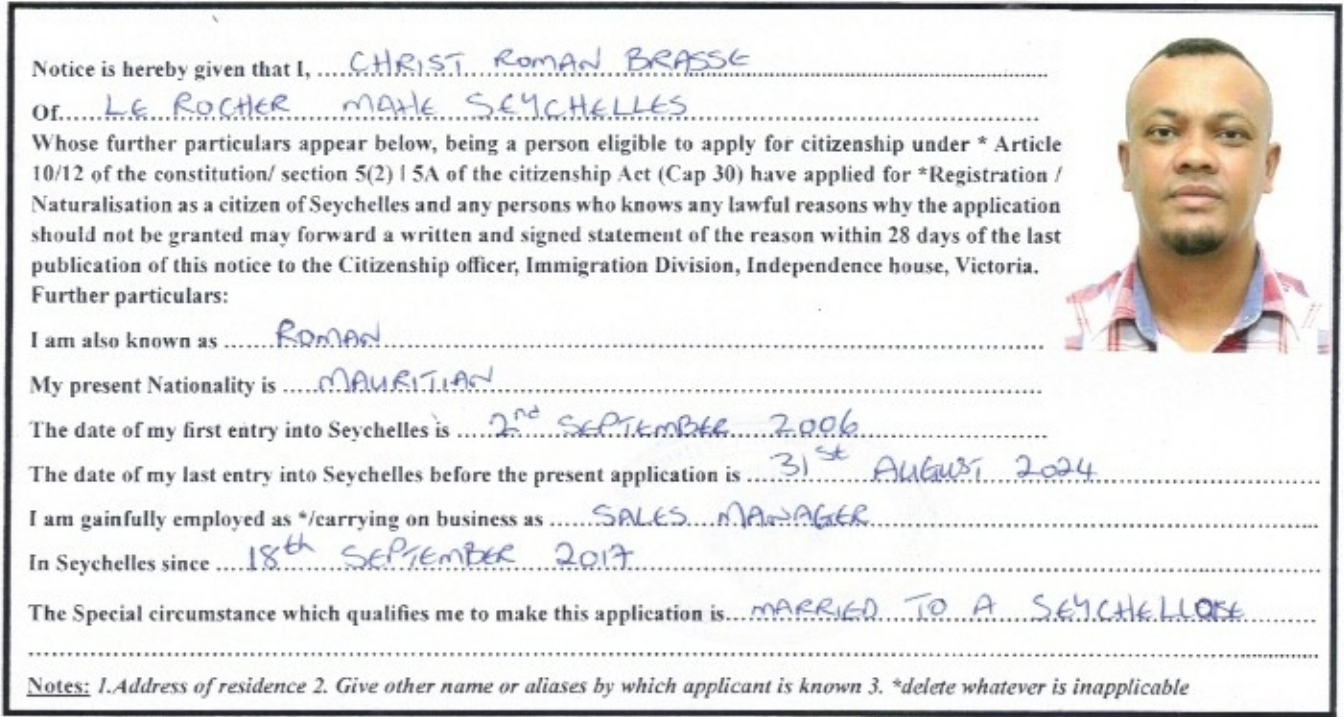 Notice is hereby given that I, ....CHRIST ROMAN BRASSE....
Of.....LE ROCHER MAHE SEYCHELLES....
Whose further particulars appear below, being a person eligible to apply for citizenship under * Article
10/12 of the constitution/ section 5(2) | 5A of the citizenship Act (Cap 30) have applied for *Registration /
Naturalisation as a citizen of Seychelles and any persons who knows any lawful reasons why the application
should not be granted may forward a written and signed statement of the reason within 28 days of the last
publication of this notice to the Citizenship officer, Immigration Division, Independence house, Victoria.
Further particulars:
I am also known as ........ROMAN....
My present Nationality is .....MAURITIAN....
The date of my first entry into Seychelles is ....2nd SEPTEMBER 2006....
The date of my last entry into Seychelles before the present application is ....31st AUGUST 2024....
I am gainfully employed as */carrying on business as ......SALES MANAGER....
In Seychelles since ....18th SEPTEMBER 2017....
The Special circumstance which qualifies me to make this application is....MARRIED TO A SEYCHELLOISE
Notes: 1.Address of residence 2. Give other name or aliases by which applicant is known 3. *delete whatever is inapplicable